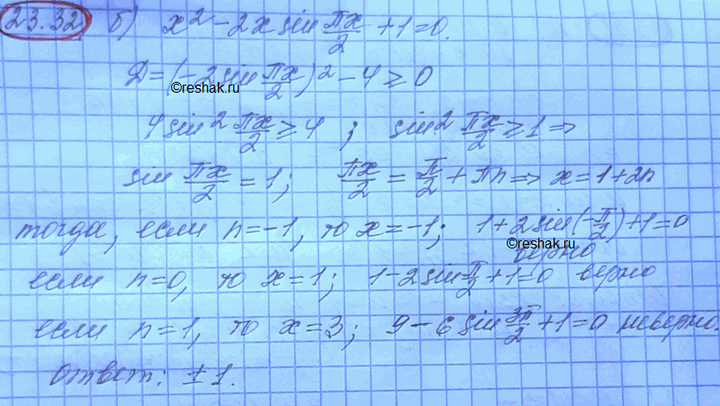 23.32 б) x² - 2x sin πx/2 + 1 = 0.
D = (-2 sin πx/2)² - 4 ≥ 0
©reshak.ru
4 sin² πx/2 ≥ 4 ; sin² πx/2 ≥ 1 ⇒
sin πx/2 = 1; πx/2 = π/2 + πn ⇒ x = 1 + 2n
тогда, если n = -1, то x = -1; 1 + 2 sin(-π/2) + 1 = 0
©reshak.ru
верно
если n = 0, то x = 1; 1 - 2 sin π/2 + 1 = 0 верно
если n = 1, то x = 3; 9 - 6 sin 3π/2 + 1 = 0 неверно
ответ: ±1.